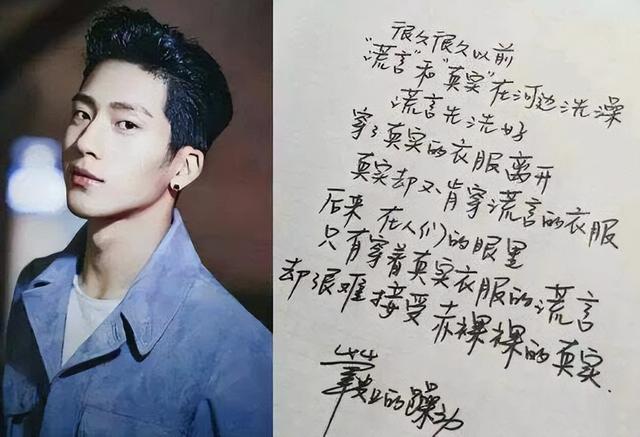 很久很久以前
“谎言”和“真实”在河边洗澡
谎言先洗好
穿了真实的衣服离开
真实却不肯穿谎言的衣服
后来 在人们的眼里
只有穿着真实衣服的谎言
却很难接受赤裸裸的真实.
的躁动